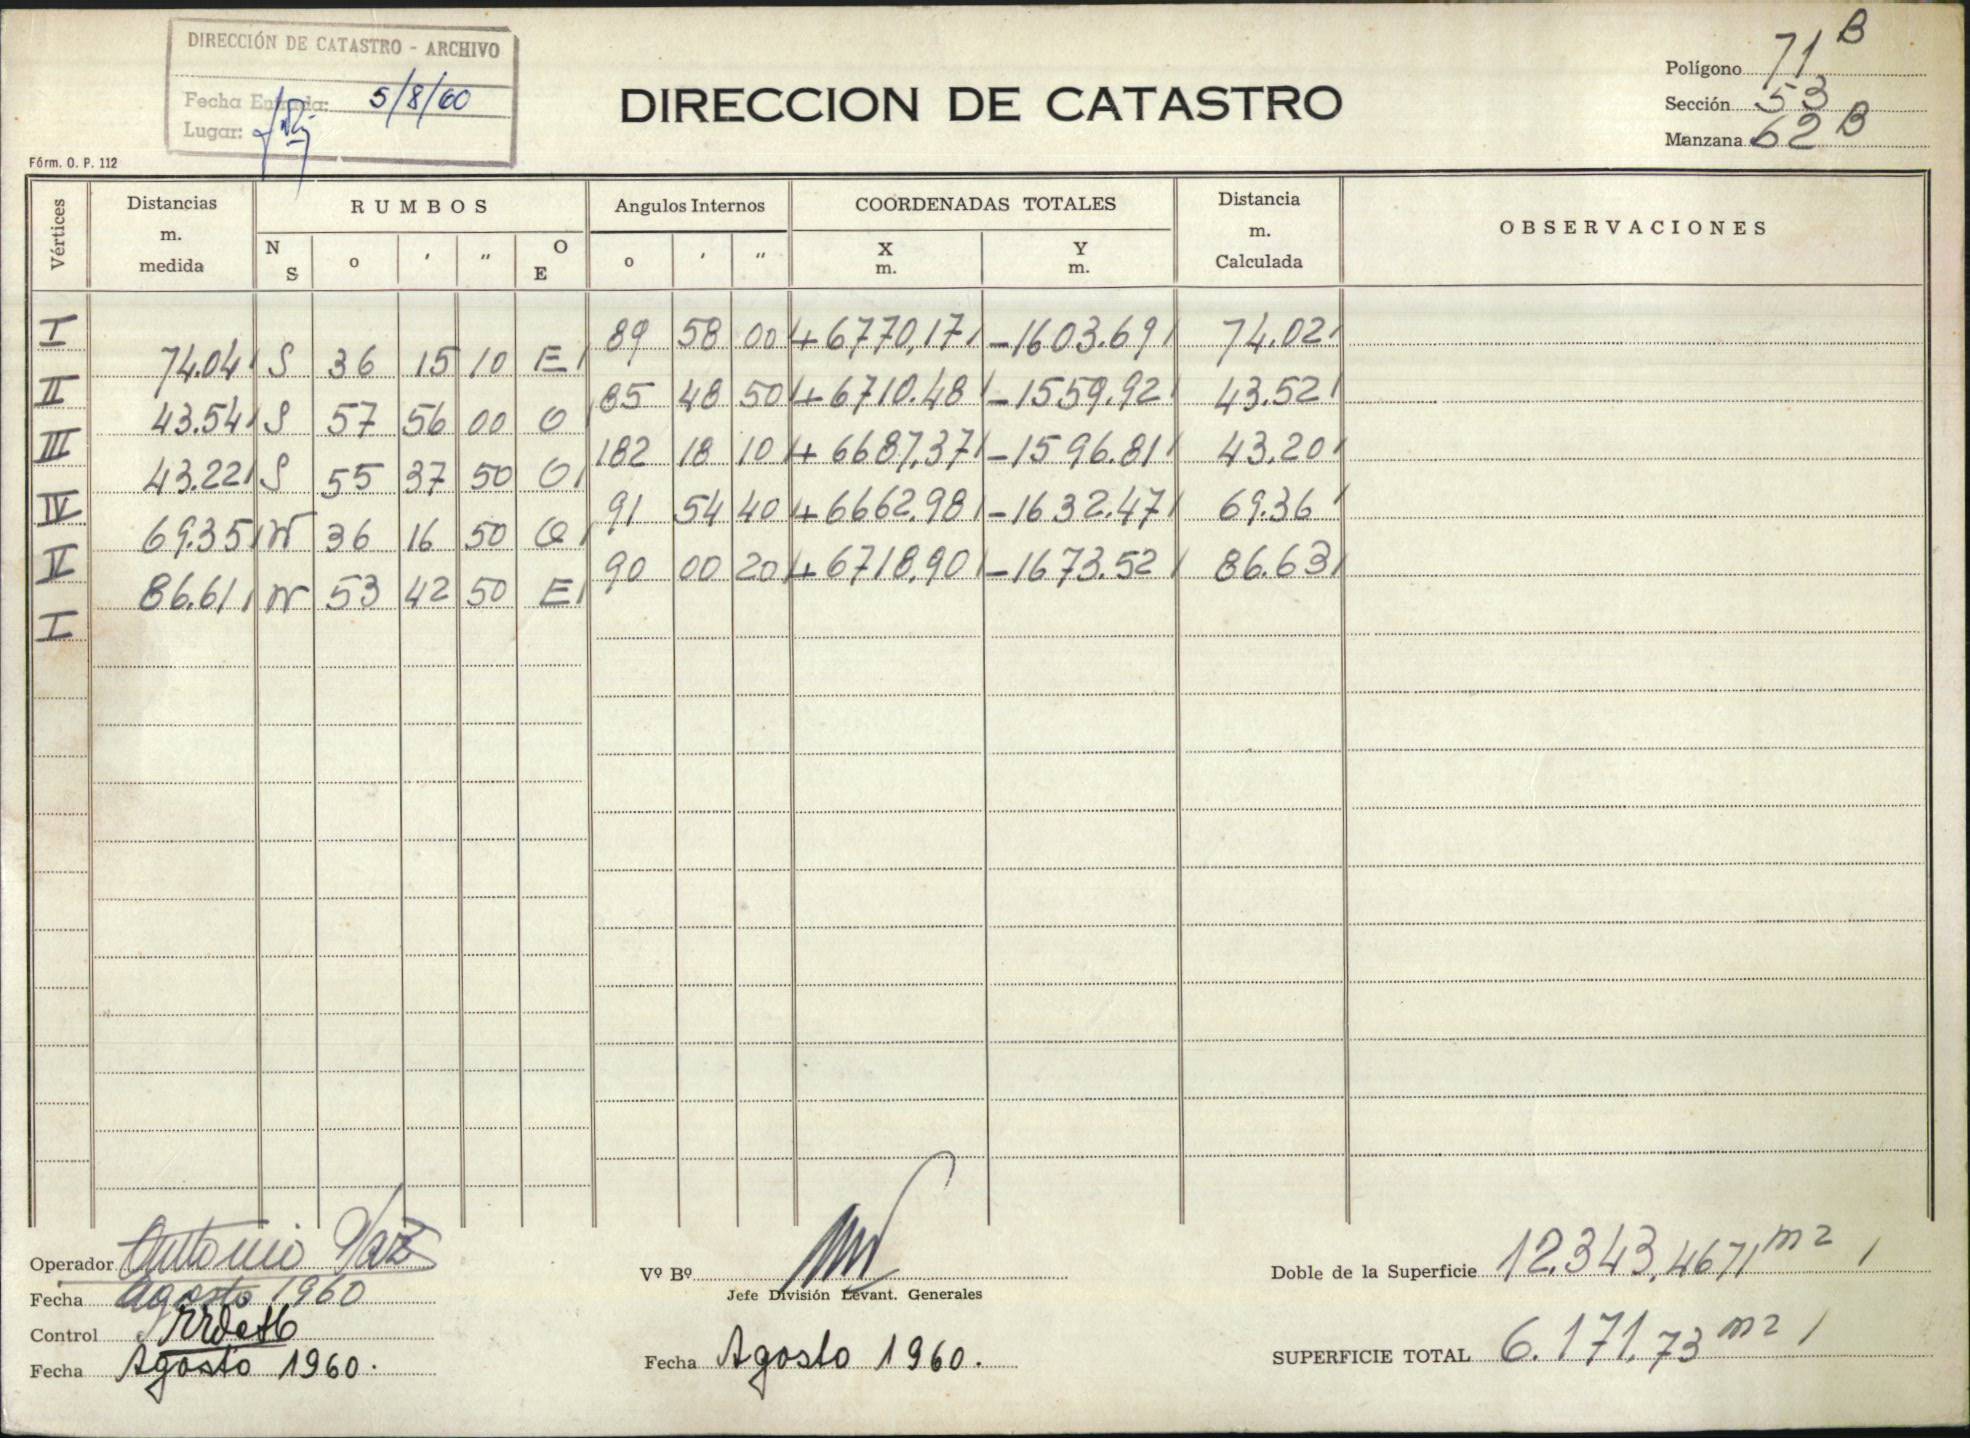 DIRECCIÓN DE CATASTRO - ARCHIVO
Fecha Entrada: 5/8/60
Lugar:
Fórm. O. P. 112
DIRECCION DE CATASTRO
Polígono 71 B
Sección 53
Manzana 62 B
Vértices Distancias m. medida RUMBOS Angulos Internos COORDENADAS TOTALES Distancia m. Calculada OBSERVACIONES
N S o ' " O E o ' " X m. Y m.
I 89 58 00 + 6770,17 -1603.69 74.02
74.04 S 36 15 10 E
II 85 48 50 + 6710.48 -1559.92 43.52
43.54 S 57 56 00 O
III 182 18 10 + 6687,37 -1596.81 43.20
43.22 S 55 37 50 O
IV 91 54 40 + 6662.98 -1632.47 69.36
69.35 N 36 16 50 O
V 90 00 20 + 6718,90 -1673.52 86.63
86.61 N 53 42 50 E
I
Operador Antonio Vaz
Fecha agosto 1960
Control
Fecha Agosto 1960.
Vº Bº
Jefe División Levant. Generales
Fecha Agosto 1960.
Doble de la Superficie 12.343,4671 m2
SUPERFICIE TOTAL 6.171,73 m2